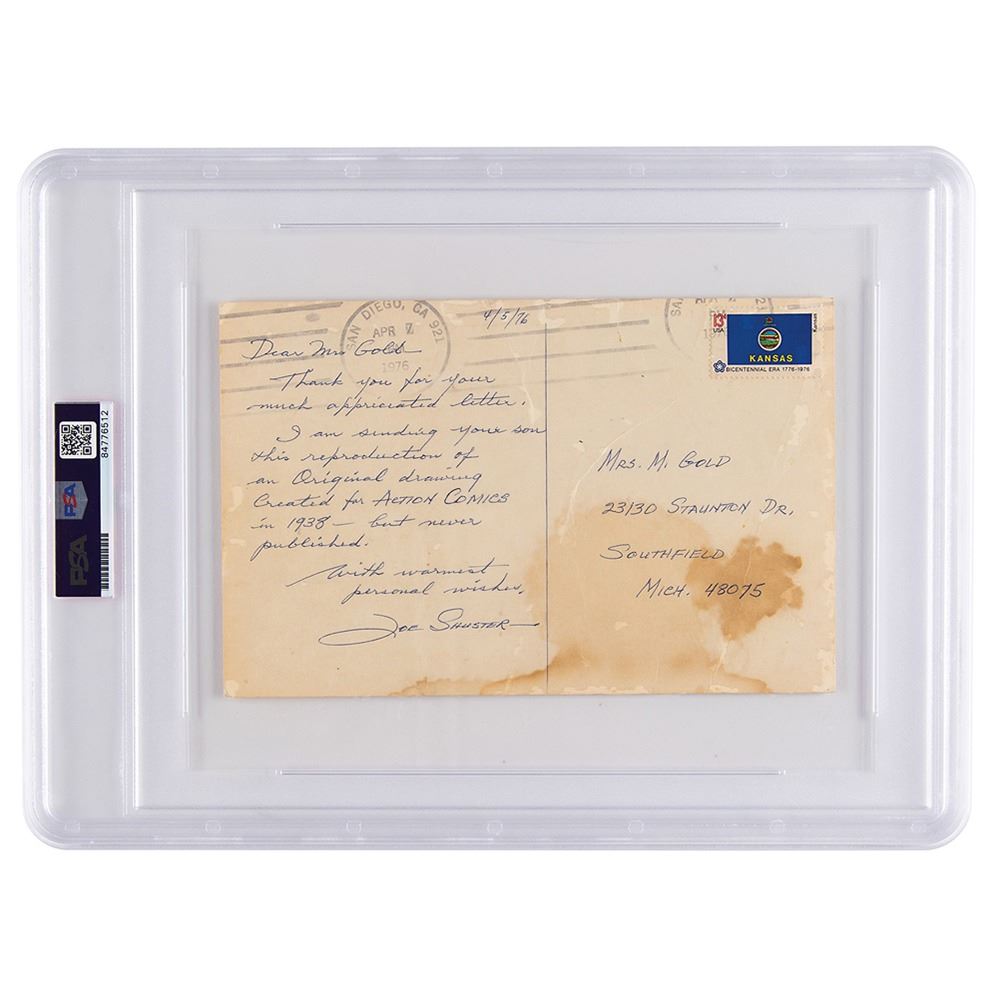 SAN DIEGO, CA 921
APR 7
1976
4/5/76
Dear Mrs Gold
Thank you for your
much appriciated letter.
I am sending your son
this reproduction of
an Original drawing
Created for ACTION COMICS
in 1938 — but never
published.
With warmest
personal wishes,
JOE SHUSTER
13¢
USA
KANSAS
Kansas
BICENTENNIAL ERA 1776-1976
MRS. M. GOLD
23130 STAUNTON DR.
SOUTHFIELD
MICH. 48075
84776512
PSA
PSA